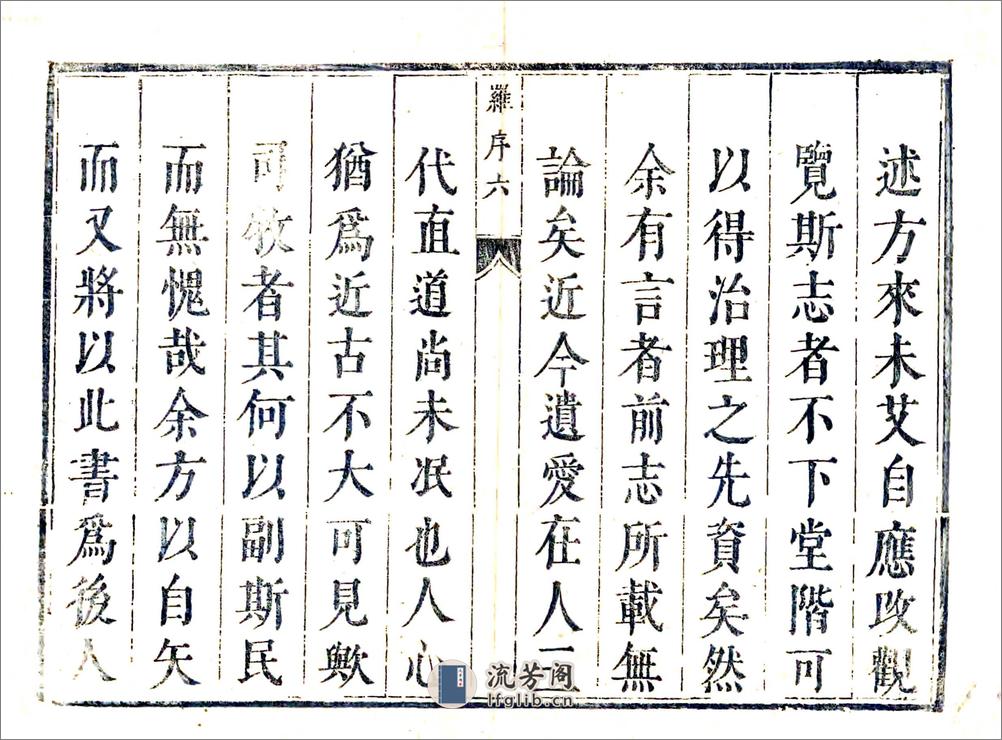 述方來未艾自應改觀
覽斯志者不下堂階可
以得治理之先資矣然
余有言者前志所載無
論矣近今遺愛在人三
羅序六
代直道尚未冺也人心
猶爲近古不大可見歟
司牧者其何以副斯民
而無愧哉余方以自矢
而又將以此書爲後人
流芳阁
lfglib.cn